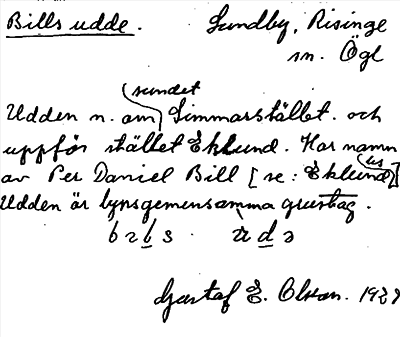 Bills udde. Sundby, Risinge
sn. Ögl
sundet
Udden n. om Simmarstället. och
uppför stället Eklund. Har namn
av Per Daniel Bill [se: Eklund]
Udden är bynsgemensamma grustag.
Gustaf E. Olsson. 1929